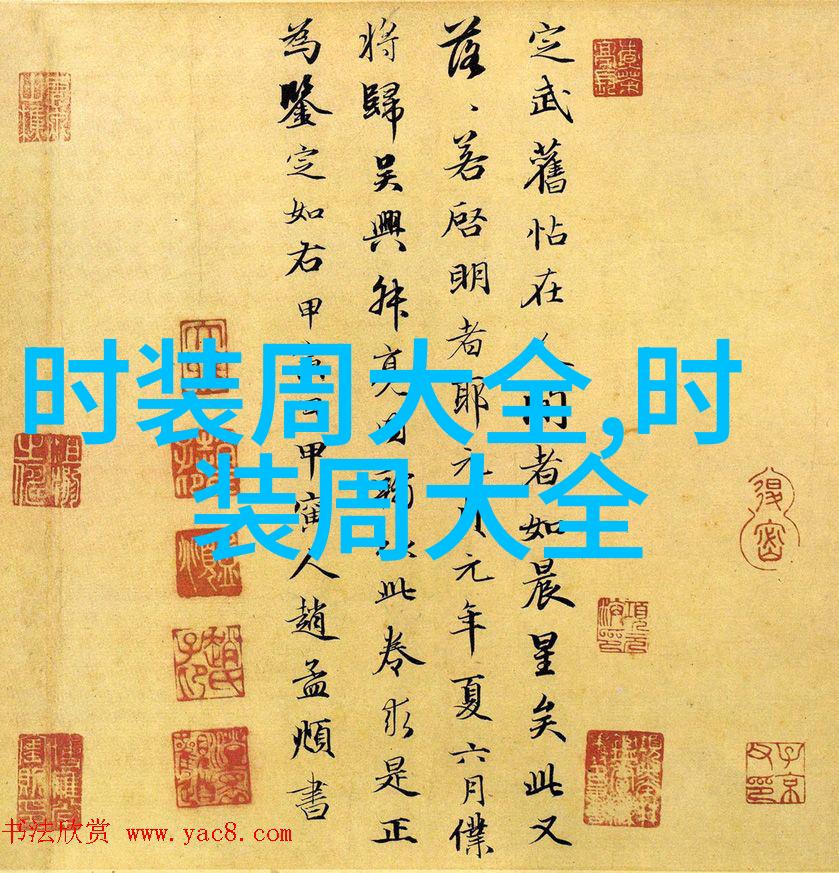 定武舊帖在人間者如晨星矣此又
落、若啓明者耶元貞元年夏六月僕
將歸吳興叔亮以此卷求是正
為鑒定如右甲寅日甲寅人趙孟頫書
时装周大全,时
装周大全
书法欣赏 www.yac8.com